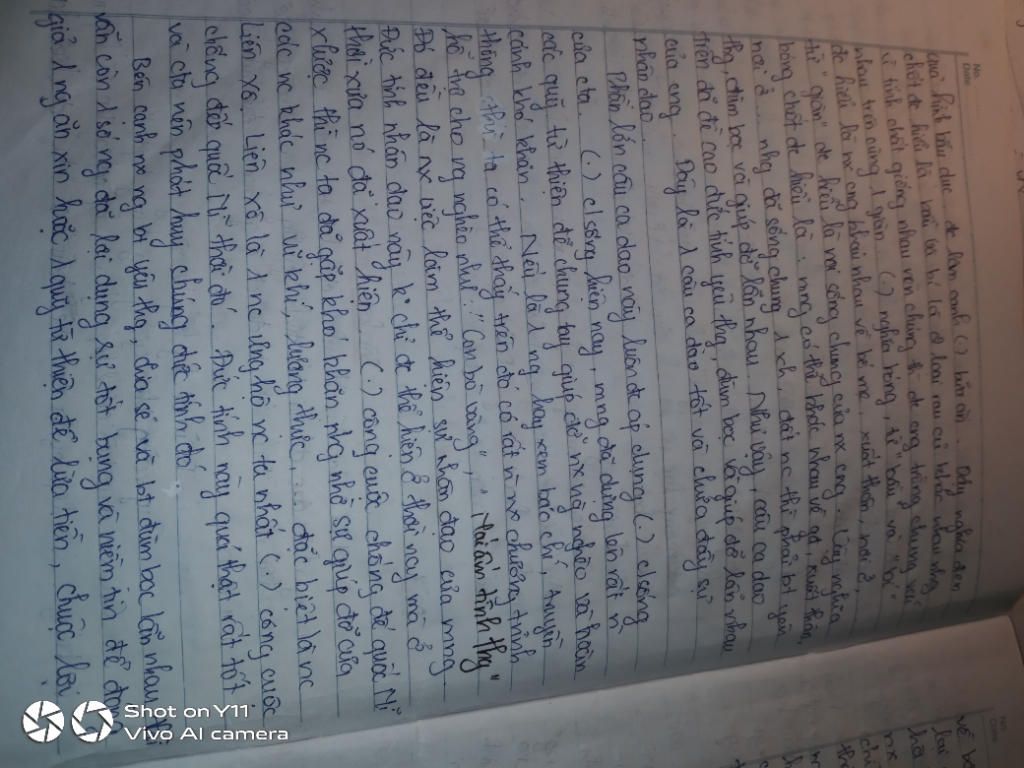 No.
Date
quả hình bầu dục, đc làm canh (.) bữa cơm. Đây nghĩa đen
chốt đc hiểu là bầu và bí là 2 loại rau củ khác nhau nhg
vì tính chất giống nhau nên chúng thì đc ng trồng chung với
nhau trên cùng 1 giàn. (.) nghĩa bóng, từ bầu và "bí"
đc hiểu là nx con ng khác nhau về bề ngoài, xuất thân, nơi ở,
từ "giàn" đc hiểu là nơi sống chung của nx con ng. Vậy nghĩa
bóng chốt đc hiểu là: mng có thể khác nhau về gđ, xuất thân,
nơi ở... nhg đã sống chung 1 xh, đất nc thì phải bt yêu
thg, đùm bọc và giúp đỡ lẫn nhau. Như vậy, câu ca dao
trên đã đề cao đức tính yêu thg, đùm bọc và giúp đỡ lẫn nhau
của cng. Đây là 1 câu ca dao tốt và chứa đầy sự
nhân đạo.
Phần lớn câu ca dao này luôn đc áp dụng (.) c/sống
của cta. (.) c/sống hiện nay, mng đã dựng lên rất n`
các quỹ từ thiện để chung tay giúp đỡ nx ng nghèo và hoàn
cảnh khó khăn. Nếu là 1 ng hay xem báo chí, truyền
thông thì ta có thể thấy trên đó có rất n` chương trình
hỗ trợ cho ng nghèo như: "Cặp bò vàng", "Mái ấm tình thg"
Đó đều là nx việc làm thể hiện sự nhân đạo của mng
Đức tính nhân đạo này k chỉ đc thể hiện ở thời nay mà ở
thời xưa nó đã xuất hiện (.) công cuộc chống đế quốc Mĩ
xlược thì nc ta đã gặp khó khăn nhg nhờ sự giúp đỡ của
các nc khác như vũ khí, lương thực,... đặc biệt là nc
Liên xô. Liên xô là 1 nc ủng hộ nc ta nhất (.) công cuộc
chống đế quốc Mĩ thời đó. Đức tính này quả thật rất tốt
và cta nên phát huy chúng đức tính đó
Bên cạnh nx ng bt yêu thg, chia sẻ và bt đùm bọc lẫn nhau thì
vẫn còn 1 số ng đã lợi dụng sự tốt bụng và niềm tin để đóng
giả 1 ng ăn xin hoặc 1 quỹ từ thiện để lừa tiền, chục lợi
Shot on Y11
Vivo AI camera